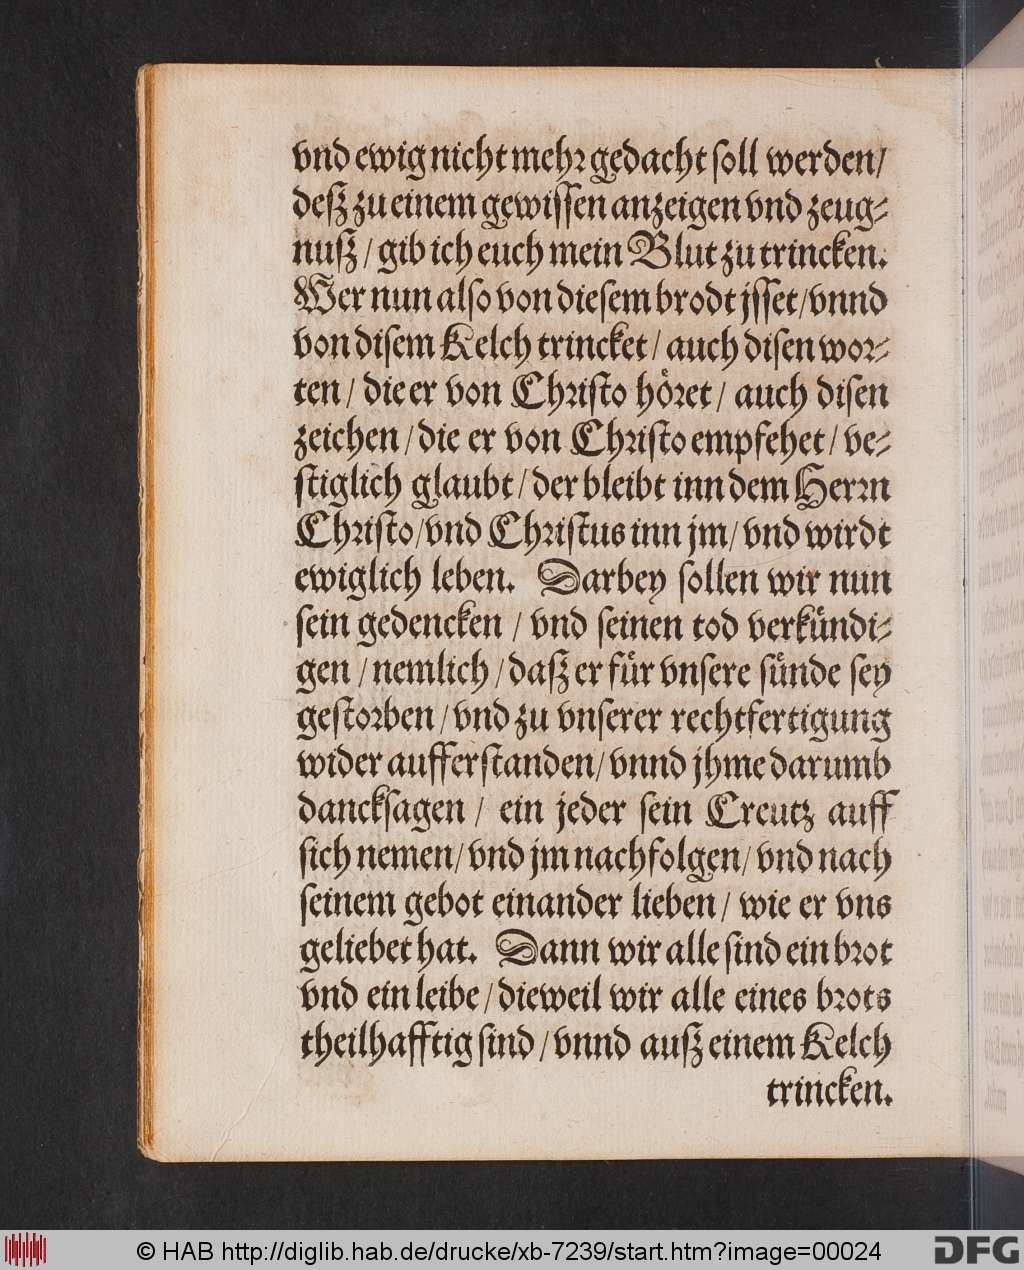 vnd ewig nicht mehr gedacht soll werden/
desz zu einem gewissen anzeigen vnd zeug⸗
nusz / gib ich euch mein Blut zu trincken.
Wer nun also von diesem brodt jsset/vnnd
von disem Kelch trincket / auch disen wor⸗
ten / die er von Christo höret / auch disen
zeichen / die er von Christo empfehet / ve⸗
stiglich glaubt / der bleibt inn dem Herrn
Christo/vnd Christus inn jm/ vnd wirdt
ewiglich leben. Darbey sollen wir nun
sein gedencken / vnd seinen tod verkündi⸗
gen / nemlich / dasz er für vnsere sünde sey
gestorben / vnd zu vnserer rechtfertigung
wider aufferstanden/ vnnd jhme darumb
dancksagen / ein jeder sein Creutz auff
sich nemen/ vnd jm nachfolgen/ vnd nach
seinem gebot einander lieben / wie er vns
geliebet hat. Dann wir alle sind ein brot
vnd ein leibe / dieweil wir alle eines brots
theilhafftig sind / vnnd ausz einem Kelch
trincken.
© HAB http://diglib.hab.de/drucke/xb-7239/start.htm?image=00024
DFG